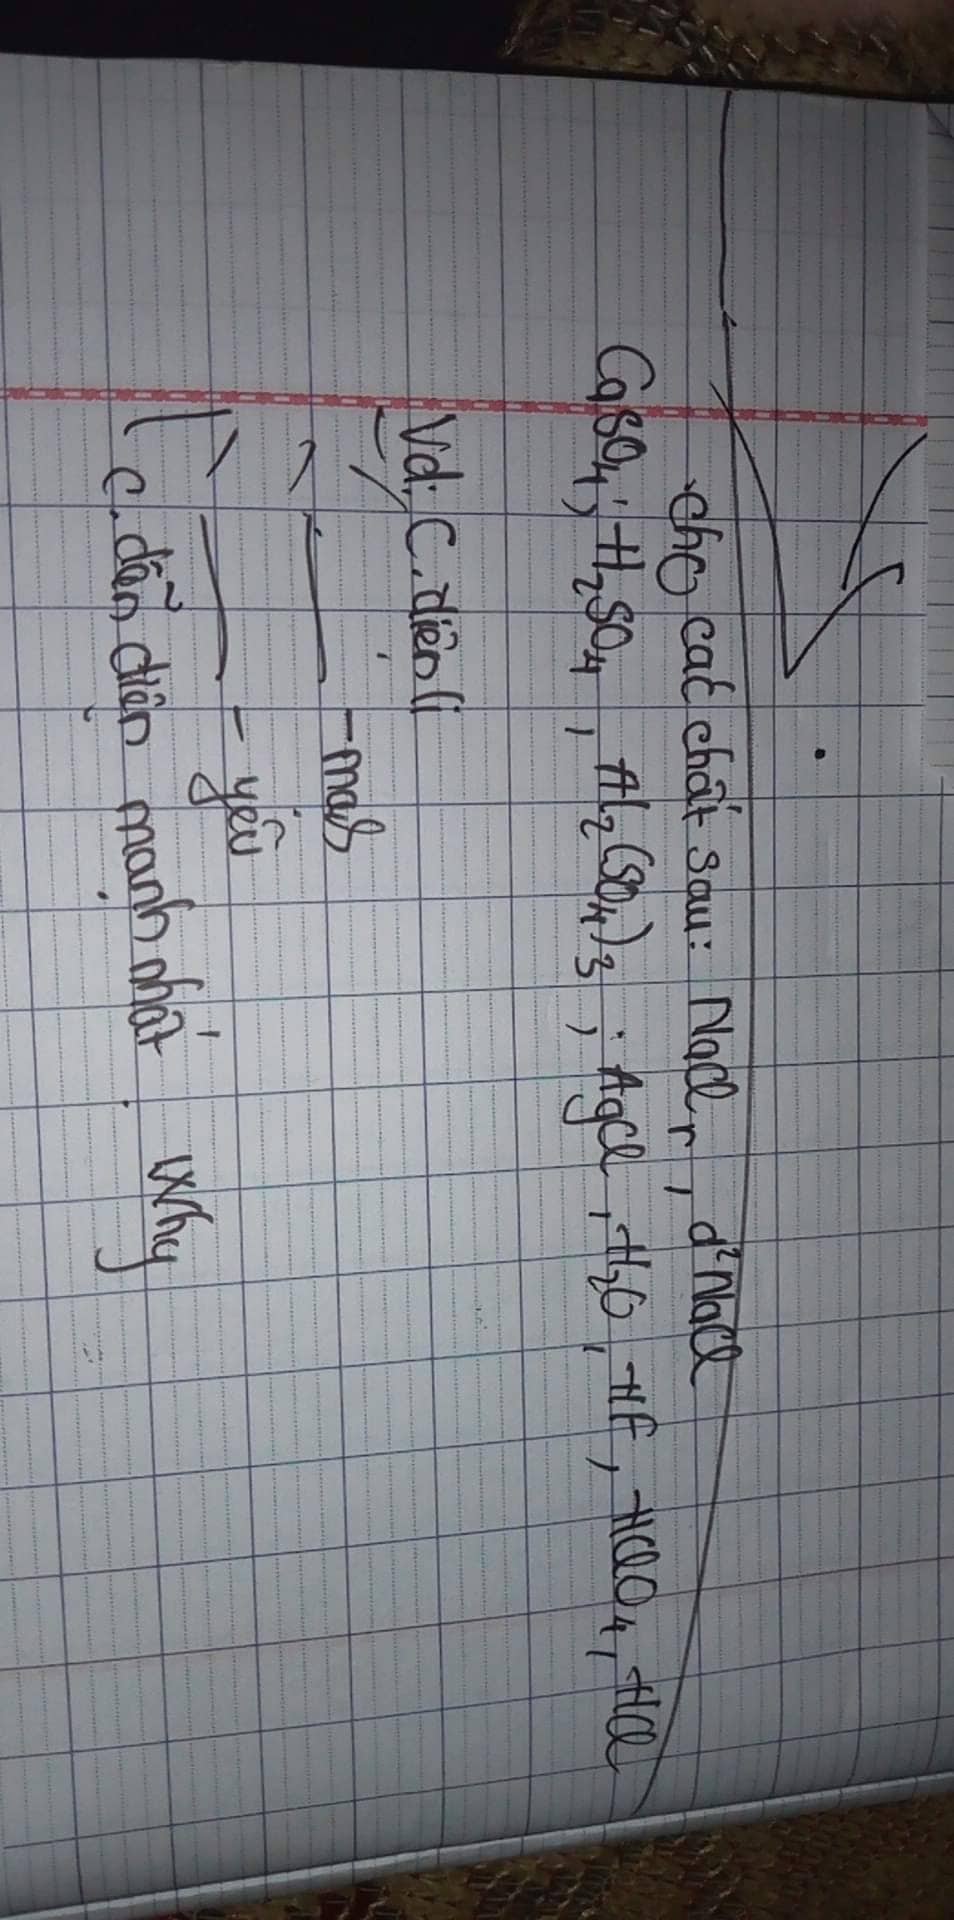 cho các chất sau: NaCl r, d² NaCl
CaSO4; H2SO4, Al2(SO4)3; AgCl, H2O, HF, HClO4, HCl
Vd: C. điện li
- mạnh
- yếu
C. dẫn điện mạnh nhất. Why